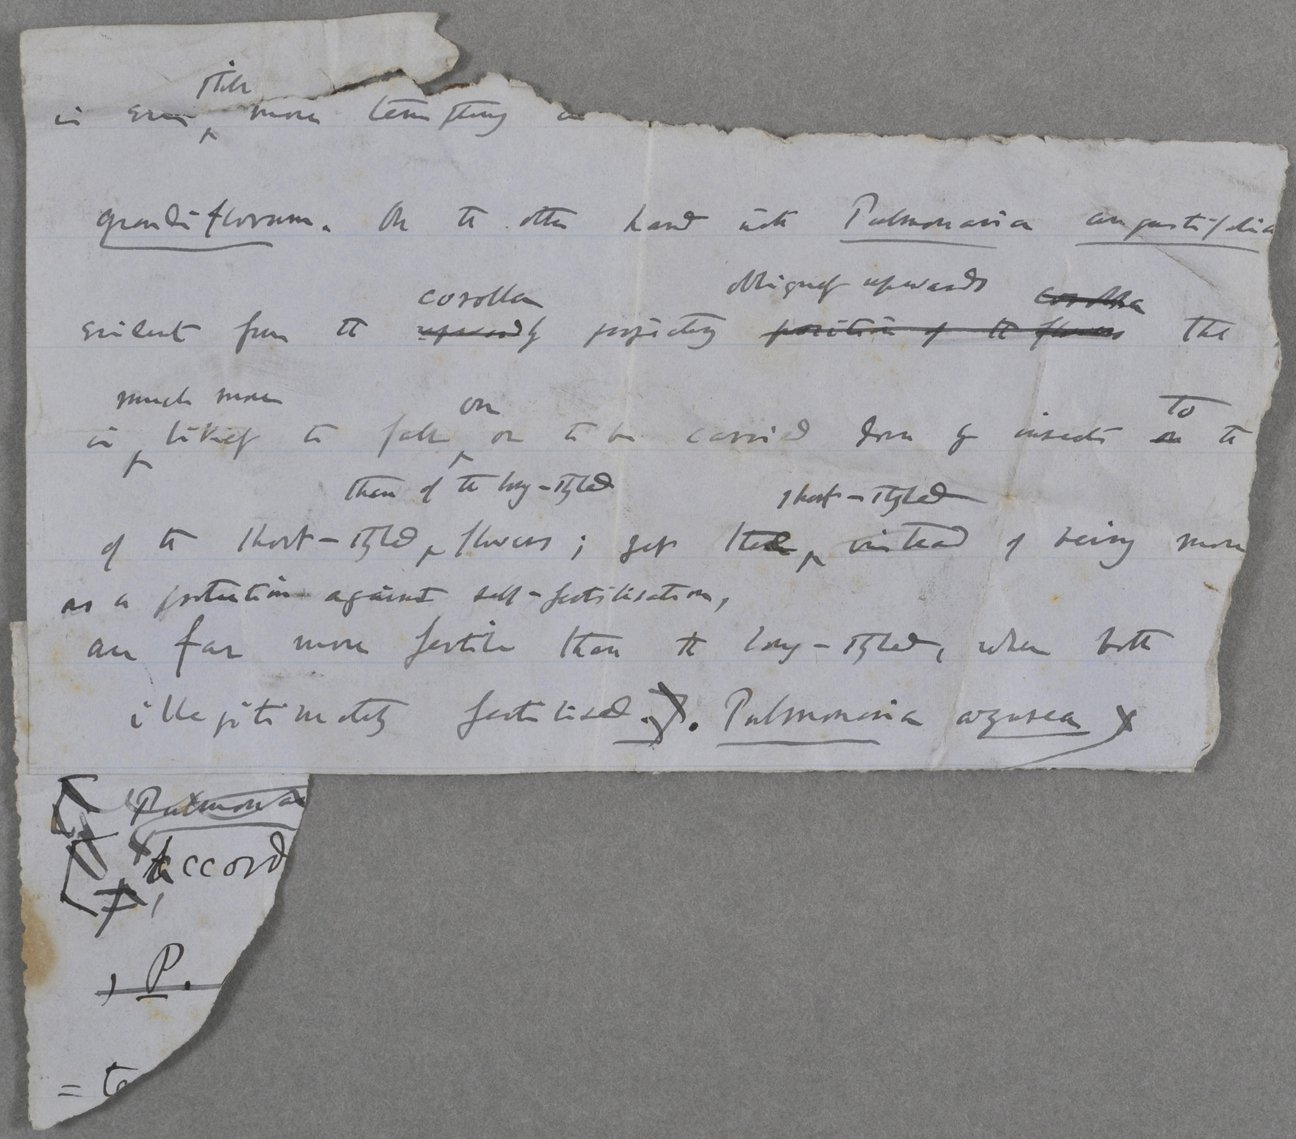 still
is even more tempting
grandiflorum. On the other hand with Pulmonaria angustifolia
corolla obliquely upwards corolla
evident from the upwardly projecting position of the flowers the
much more on to
is likely to fall or to be carried down by insects on the
than of the long-styled short-styled
of the short-styled flowers; yet instead of being more
as a protection against self-fertilisation,
are far more fertile than the long-styled, when both
illegitimately fertilised. Pulmonaria azurea
Pulmona
Accord
, P.
= to